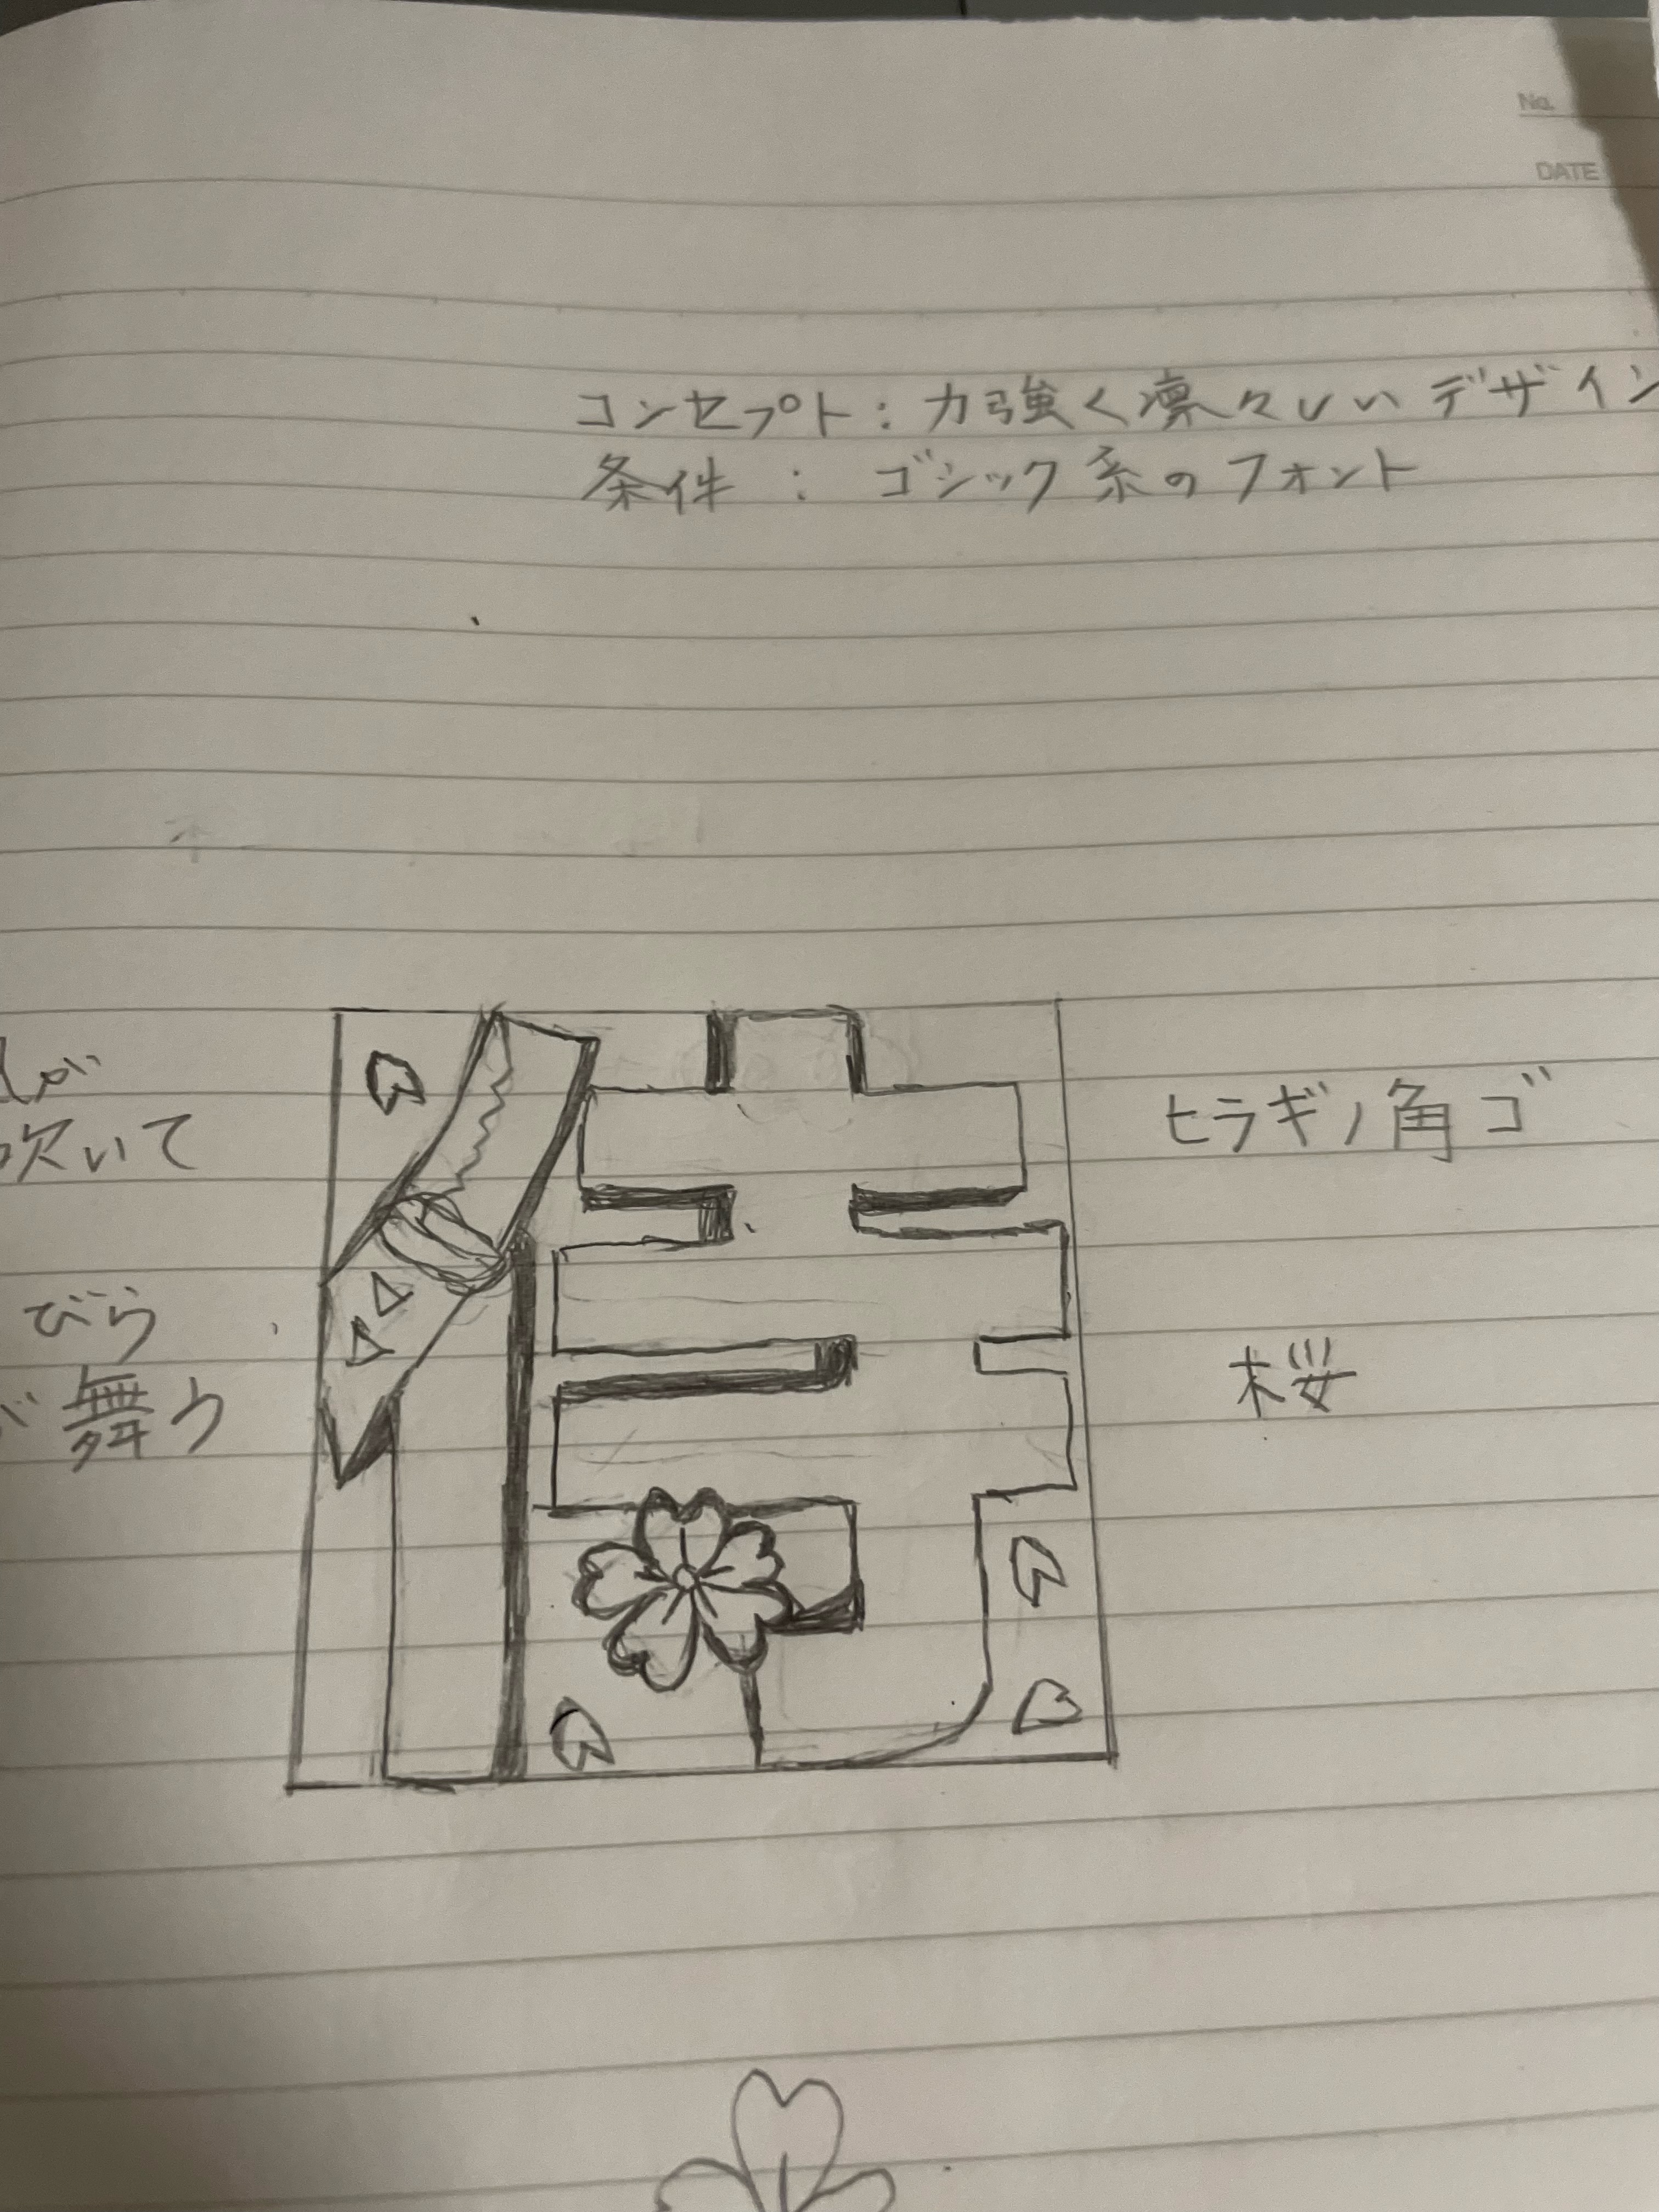 No.
DATE
コンセプト：力強く凛々しいデザイン
条件：ゴシック系のフォント
が
吹いて
びら
舞う
侍
ヒラギノ角ゴ
桜